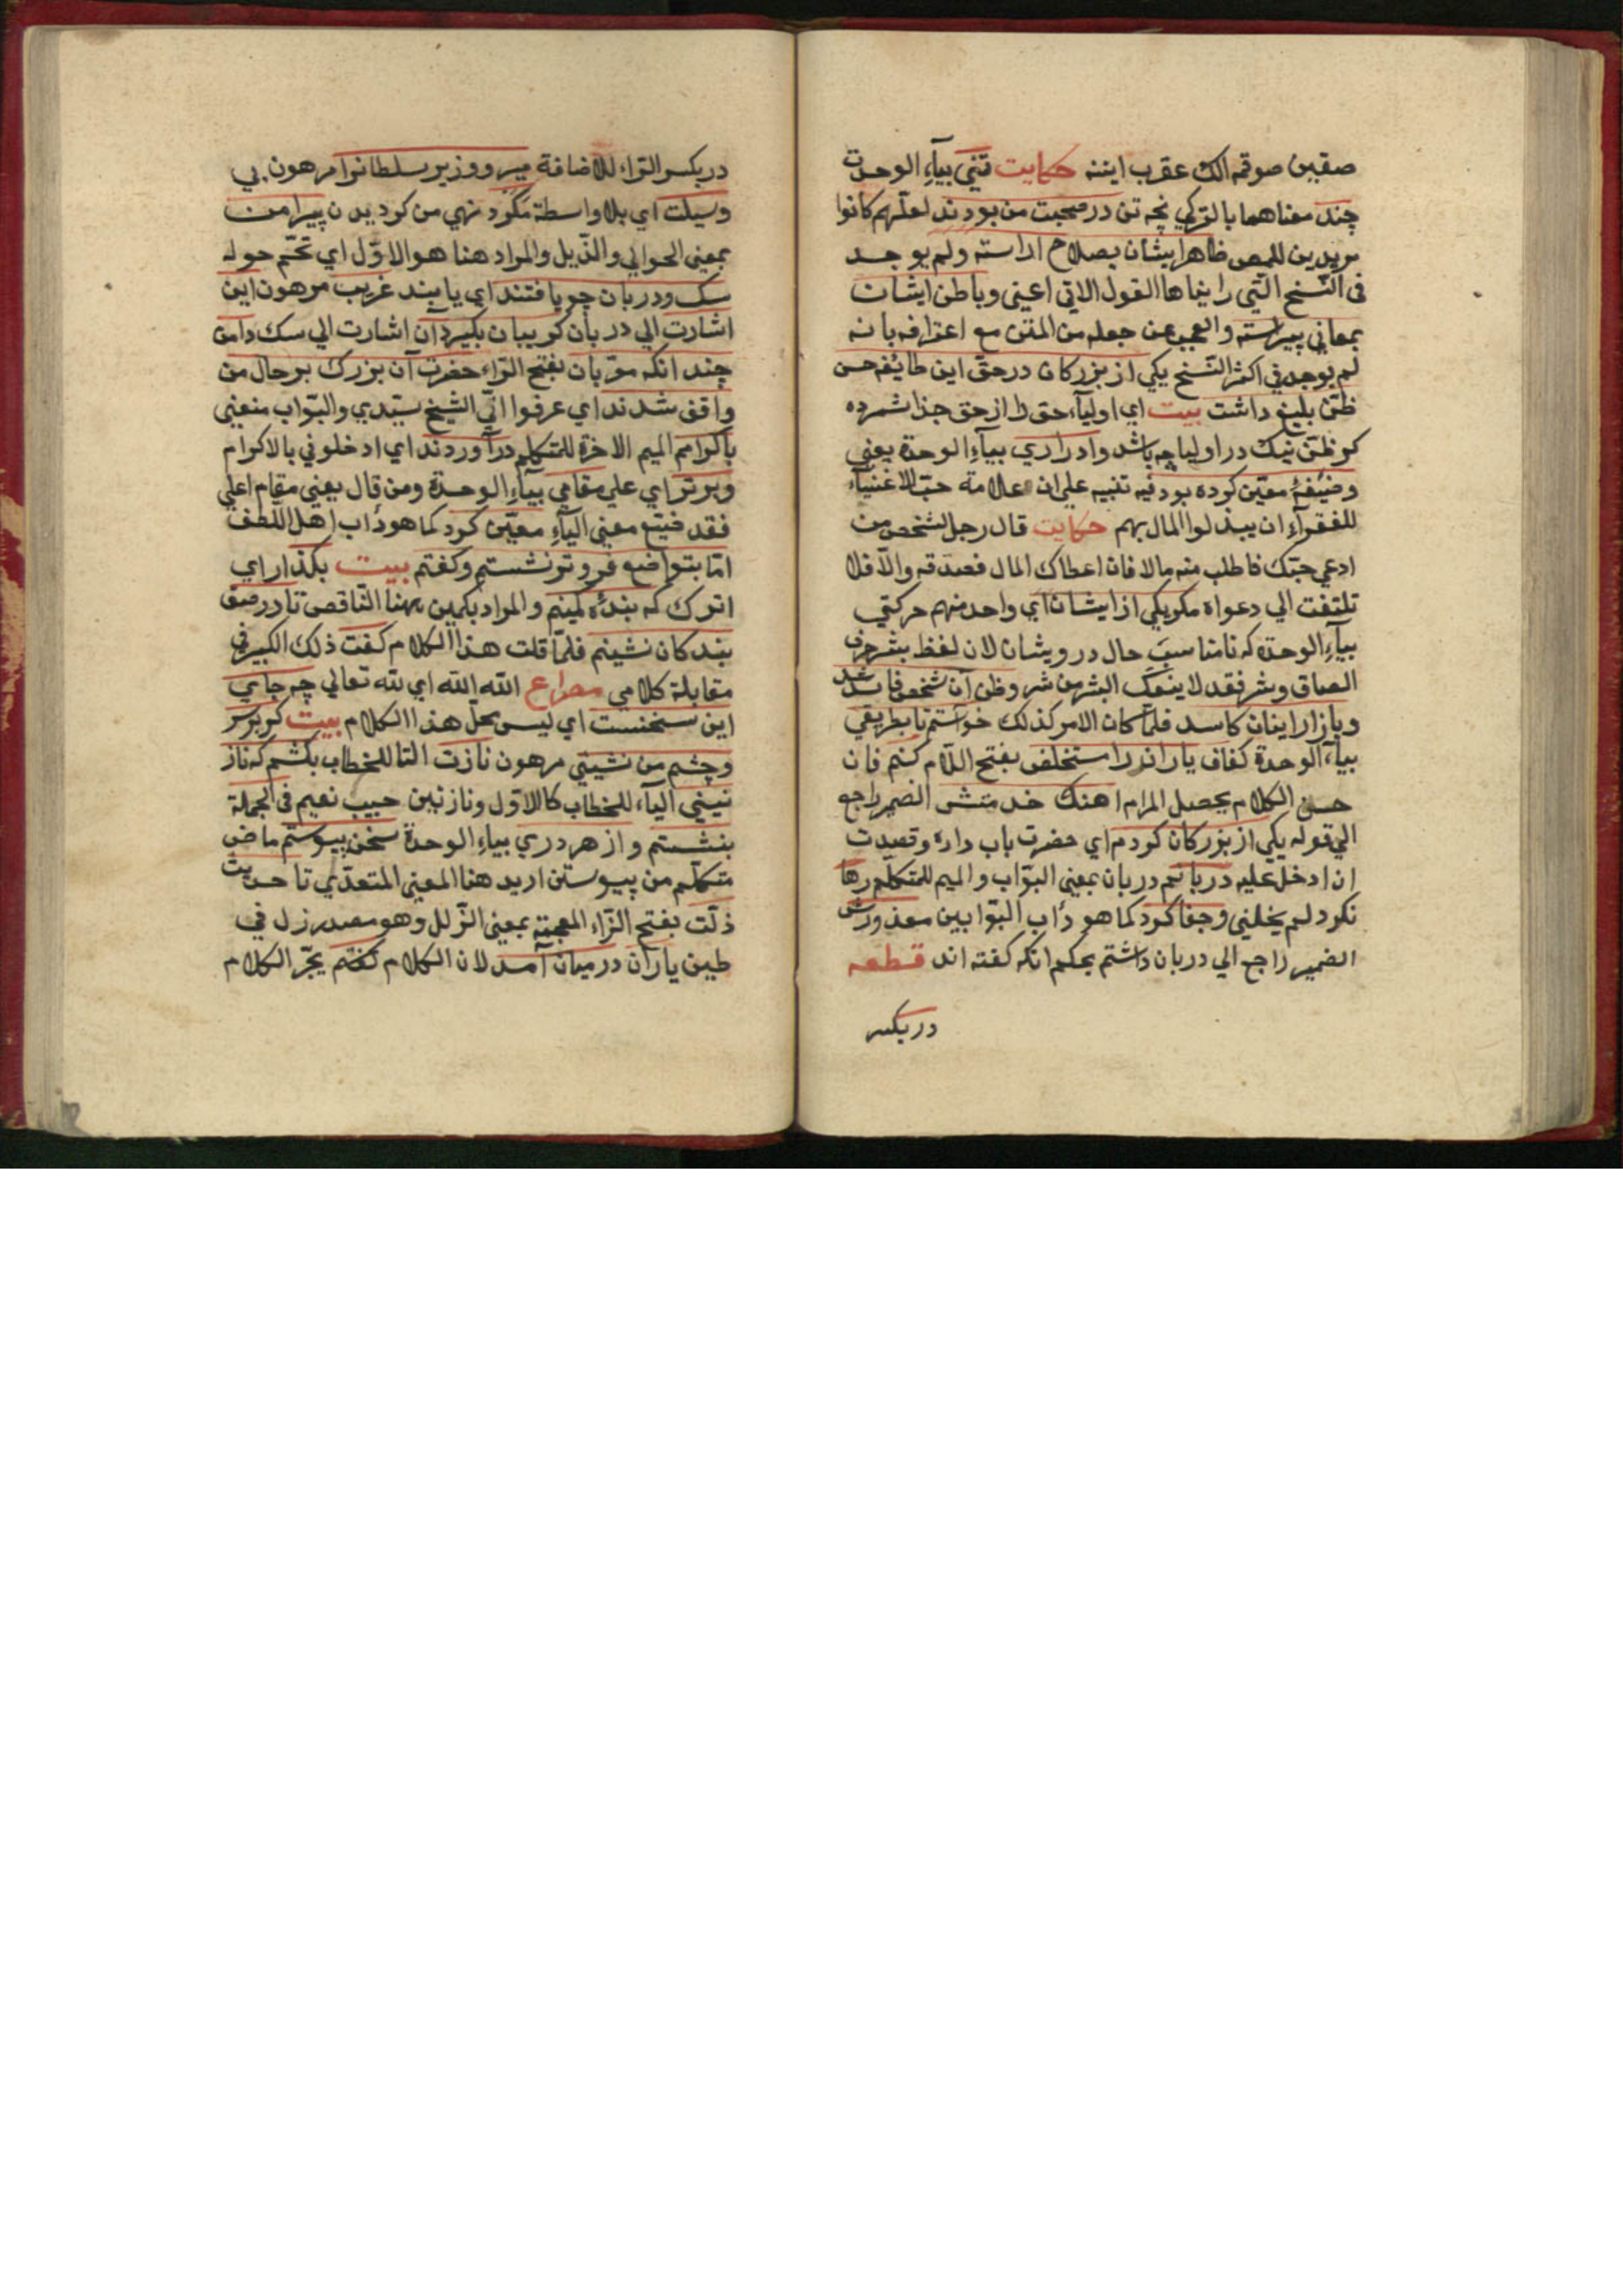 صقبن صوقمه الك عقرب ايننه حكايت تنی بياء الوحدت
چند معناهما بالتركي نچه تن در صحبت من بودند لعلهم كانوا
مريدين للمص ظاهر ايشان بصلاح اراسته ولم يوجد
فی النسخ التي رايناها القول الاتي اعنی وباطن ايشان
بمعاني پيراسته والعجب عمن جعله من المتن مع اعترافه بانه
لم يوجد في اكثر النسخ يكي از بزركان در حق اين طايفه حسن
ظن بليغ داشت بيت اي اولياء حق را از حق جدا شمرده
كر ظن نيك در اوليا چه باشد وادراري بياء الوحدة يعني
وظيفهٔ معين كرده بود فيه تنبيه على ان علامة حب الاغنياء
للفقراء ان يبذلوا المال بهم حكايت قال رجل لشخص من
ادعي حبك فاطلب منه مالا فان اعطاك المال فصدقه والا فلا
تلتفت الي دعواه مكر يكي از ايشان اي واحد منهم حركتي
بياء الوحدة كه نامناسب حال درويشان لان لفظ بشر حرفی
الصاق وشر فقد لا ينفك البشر من شر وظن آن شخص فاسد شد
وبازار اينان كاسد فلما كان الامر كذلك خواستم تا بطريقي
بياء الوحدة كفاف يارانرا مستخلص بفتح اللام كنم فان
حسن الكلام يحصل المرام اهنك خدمتش الضمير راجع
الي قوله يكي از بزركان كردم اي حضرت باب داره وقصدت
ان ادخل عليه دربانم دربان بمعنی البواب والميم للمتكلم رها
نكرد لم يخلني وجفا كرد كما هو دأب البوابين معذورش
الضمير راجع الي دربان داشتم بحكم انكه كفته اند قطعه
در بكسر
در بكسر الراء للاضافة مير ووزير وسلطانرا مرهون بي
وسيلت اي بلا واسطة مكرد نهي من كرديدن پيرامن
بمعنی الحوالي والذيل والمراد هنا هو الاول اي تحم حوله
سك ودربان چو يافتند اي يابند غريب مرهون اين
اشارت الي دربان كريبان بكيرد آن اشارت الي سك دامن
چند انكه مقربان بفتح الراء حضرت آن بزرك بر حال من
واقف شدند اي عرفوا اني الشيخ سعدي والبواب منعنی
باكرامم الميم الاخرة للمتكلم درآوردند اي ادخلوني بالاكرام
وبرتر اي علي مقامي بياء الوحدة ومن قال يعني مقام اعلي
فقد ضيع معني الياء معين كرد كما هو دأب اهل اللطف
اما بتواضع فروتر نشستم وكفتم بيت بكذار اي
اترك كه بندهٔ كمينم والمراد بكمين ههنا الناقص تا در صف
بندكان نشينم فلما قلت هذا الكلام كفت ذلك الكبير في
مقابلة كلامي مصراع الله الله اي لله تعالي چه جاي
اين سخنست اي ليس محل هذا الكلام بيت كر بر سر
وچشم من نشيني مرهون نازت التا للخطاب بكشم كه ناز
نيني الياء للخطاب كالاول ونازنين حبيب نعيم فی الجملة
بنشستم واز هر دري بياء الوحدة سخن پيوستم ماض
متكلم من پيوستن اريد هنا المعنی المتعدي تا حديث
ذلت بفتح الزاء المعجمة بمعنی الزلل وهو مصدر زل في
طين ياران درميان آمد لان الكلام كفتم يجر الكلام